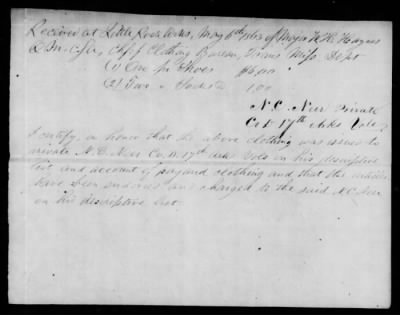 Received at Little Rock Arks, May 6th 1863 of Major W. H. Haynes
Q.M. C.S.A. Chf of Clothing Bureau, Trans Miss. Dept
(1) One pr Shoes $6.00
(2) Two " Socks 1.00
N. C. Neer Private
Co D 17th Arks Vols
I certify on honor that the above clothing was issued to
private N. C. Neer Co. D. 17th Arks Vols on his descriptive
list and account of pay and clothing and that the articles
have been endorsed and charged to the said N. C. Neer
on his descriptive list